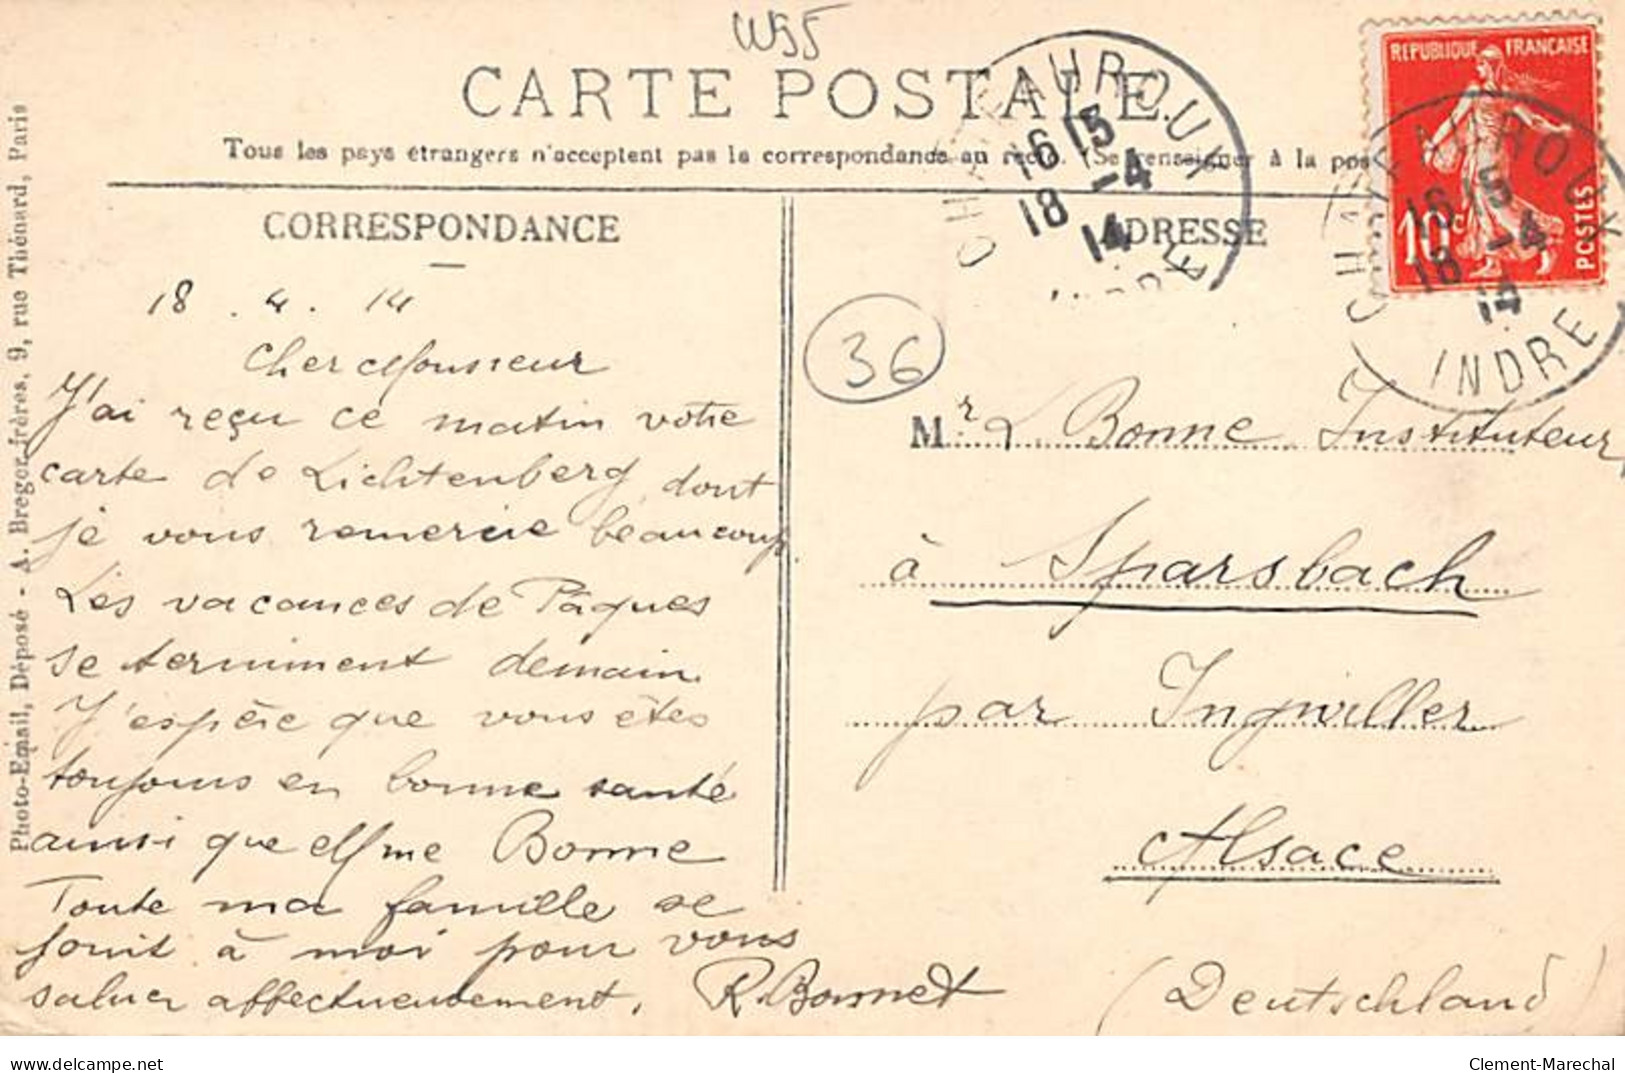 W55
CARTE POSTALE.
Tous les pays étrangers n'acceptent pas la correspondance au recto. (Se renseigner à la pos
CORRESPONDANCE
18 . 4 . 14
Cher Monsieur
J'ai reçu ce matin votre
carte de Lichtenberg dont
je vous remercie beaucoup.
Les vacances de Pâques
se terminent demain.
J'espère que vous êtes
toujours en bonne santé
ainsi que Mme Bonne
Toute ma famille se
joint à moi pour vous
saluer affectueusement.
R. Bonnet
Photo-Email, Déposé - A. Breger frères, 9, rue Thénard, Paris
ADRESSE
36
Mr L Bonne Instituteur
à Sparsbach
par Ingwiller
Alsace
(Deutschland)
CHATEAUROUX
16 15
18 -4
14
INDRE
REPUBLIQUE FRANÇAISE
10c
POSTES
CHATEAUROUX
16 15
18 -4
14
INDRE
delcampe.net
Clement-Marechal